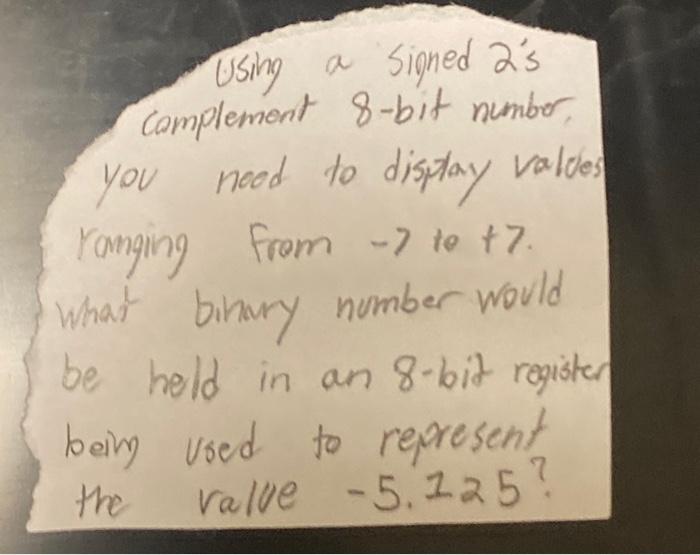 Using a signed 2's
complement 8-bit number,
you need to display values
ranging from -7 to +7.
What binary number would
be held in an 8-bit register
being used to represent
the value -5.125?